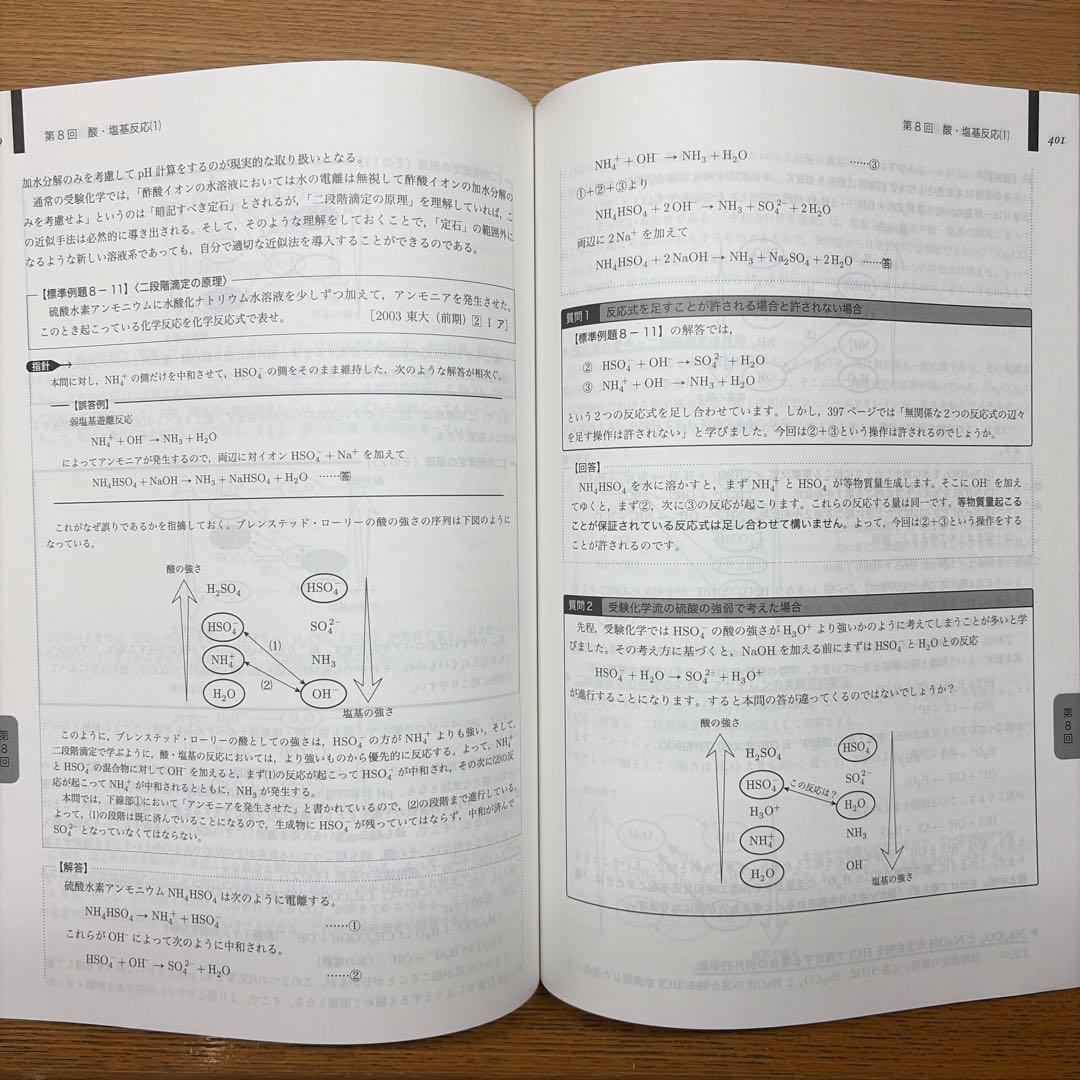 第8回 酸・塩基反応(1)
加水分解のみを考慮して pH 計算をするのが現実的な取り扱いとなる。
通常の受験化学では,「酢酸イオンの水溶液においては水の電離は無視して酢酸イオンの加水分解の
みを考慮せよ」というのは「暗記すべき定石」とされるが,「二段階滴定の原理」を理解していれば,こ
の近似手法は必然的に導き出される。そして,そのような理解をしておくことで,「定石」の範囲外に
なるような新しい溶液系であっても,自分で適切な近似法を導入することができるのである。
【標準例題8−11】〈二段階滴定の原理〉
硫酸水素アンモニウムに水酸化ナトリウム水溶液を少しずつ加えて,アンモニアを発生させた。
このとき起こっている化学反応を化学反応式で表せ。 [2003 東大(前期)② Ⅰ ア]
指針
本問に対し,NH₄⁺ の側だけを中和させて,HSO₄⁻ の側をそのまま維持した,次のような解答が相次ぐ。
【誤答例】
弱塩基遊離反応
NH₄⁺ + OH⁻ → NH₃ + H₂O
によってアンモニアが発生するので,両辺に対イオン HSO₄⁻ + Na⁺ を加えて
NH₄HSO₄ + NaOH → NH₃ + NaHSO₄ + H₂O ……答
これがなぜ誤りであるかを指摘しておく。ブレンステッド・ローリーの酸の強さの序列は下図のように
なっている。
酸の強さ
H₂SO₄ HSO₄⁻
HSO₄⁻ SO₄²⁻
(1)
NH₄⁺ NH₃
(2)
H₂O OH⁻
塩基の強さ
このように,ブレンステッド・ローリーの酸としての強さは,HSO₄⁻ の方が NH₄⁺ よりも強い。そして,
二段階滴定で学ぶように,酸・塩基の反応においては,より強いものから優先的に反応する。よって,NH₄⁺
と HSO₄⁻ の混合物に対して OH⁻ を加えると,まず(1)の反応が起こって HSO₄⁻ が中和され,その次に(2)の反
応が起こって NH₄⁺ が中和されるとともに,NH₃ が発生する。
本問では,下線部①において「アンモニアを発生させた」と書かれているので,(2)の段階まで進行している。
よって,(1)の段階は既に済んでいることになるので,生成物に HSO₄⁻ が残っていてはならず,中和が済んで
SO₄²⁻ となっていなくてはならない。
【解答】
硫酸水素アンモニウム NH₄HSO₄ は次のように電離する。
NH₄HSO₄ → NH₄⁺ + HSO₄⁻ ……①
これらが OH⁻ によって次のように中和される。
HSO₄⁻ + OH⁻ → SO₄²⁻ + H₂O ……②
第8回
第8回 酸・塩基反応(1) 401
NH₄⁺ + OH⁻ → NH₃ + H₂O ……③
①+②+③より
NH₄HSO₄ + 2 OH⁻ → NH₃ + SO₄²⁻ + 2 H₂O
両辺に 2 Na⁺ を加えて
NH₄HSO₄ + 2 NaOH → NH₃ + Na₂SO₄ + 2 H₂O ……答
質問1 反応式を足すことが許される場合と許されない場合
【標準例題8−11】の解答では,
② HSO₄⁻ + OH⁻ → SO₄²⁻ + H₂O
③ NH₄⁺ + OH⁻ → NH₃ + H₂O
という2つの反応式を足し合わせています。しかし,397 ページでは「無関係な2つの反応式の辺々
を足す操作は許されない」と学びました。今回は②+③という操作は許されるのでしょうか。
【回答】
NH₄HSO₄ を水に溶かすと,まず NH₄⁺ と HSO₄⁻ が等物質量生成します。そこに OH⁻ を加え
てゆくと,まず②,次に③の反応が起こります。これらの反応する量は同一です。等物質量起こる
ことが保証されている反応式は足し合わせて構いません。よって,今回は②+③という操作をする
ことが許されるのです。
質問2 受験化学流の硫酸の強弱で考えた場合
先程,受験化学では HSO₄⁻ の酸の強さが H₃O⁺ より強いかのように考えてしまうことが多いと学
びました。その考え方に基づくと,NaOH を加える前にまずは HSO₄⁻ と H₂O との反応
HSO₄⁻ + H₂O → SO₄²⁻ + H₃O⁺
が進行することになります。すると本問の答が違ってくるのではないでしょうか?
酸の強さ
H₂SO₄ HSO₄⁻
HSO₄⁻ SO₄²⁻
この反応は?
H₃O⁺ H₂O
NH₄⁺ NH₃
H₂O OH⁻
塩基の強さ
第8回